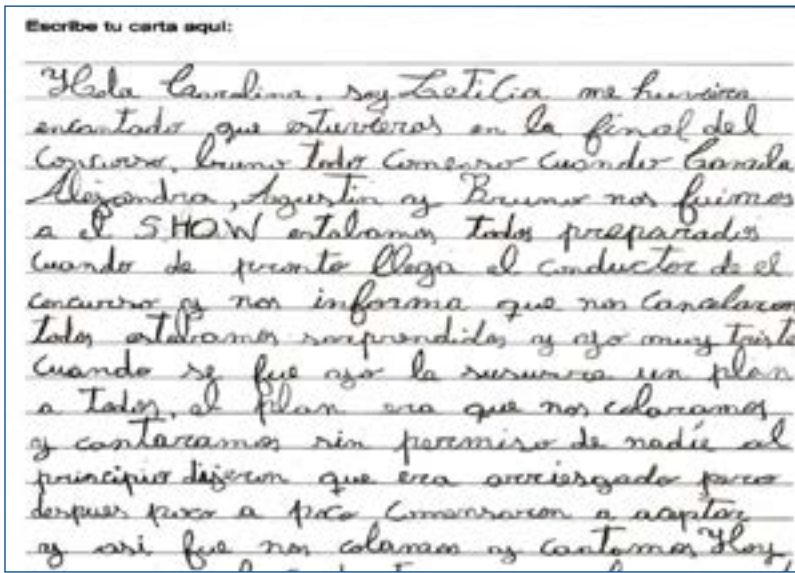 Escribe tu carta aquí:
Hola Carolina, soy Leticia me huviera
encantado que estuvieras en la final del
concurso, bueno todo comenso cuando Camila
Alejandra, Agustin y Bruno nos fuimos
a el SHOW estabamos todos preparados
cuando de pronto llega el conductor de el
concurso y nos informa que nos cancelaron
todos estabamos sorprendidos y yo muy triste
cuando se fue yo le susurre un plan
a todos, el plan era que nos colaramos
y cantaramos sin permiso de nadie al
principio dijeron que era arriesgado pero
despues poco a poco comensaron a aceptar
y asi fue nos colamos y cantamos Hoy